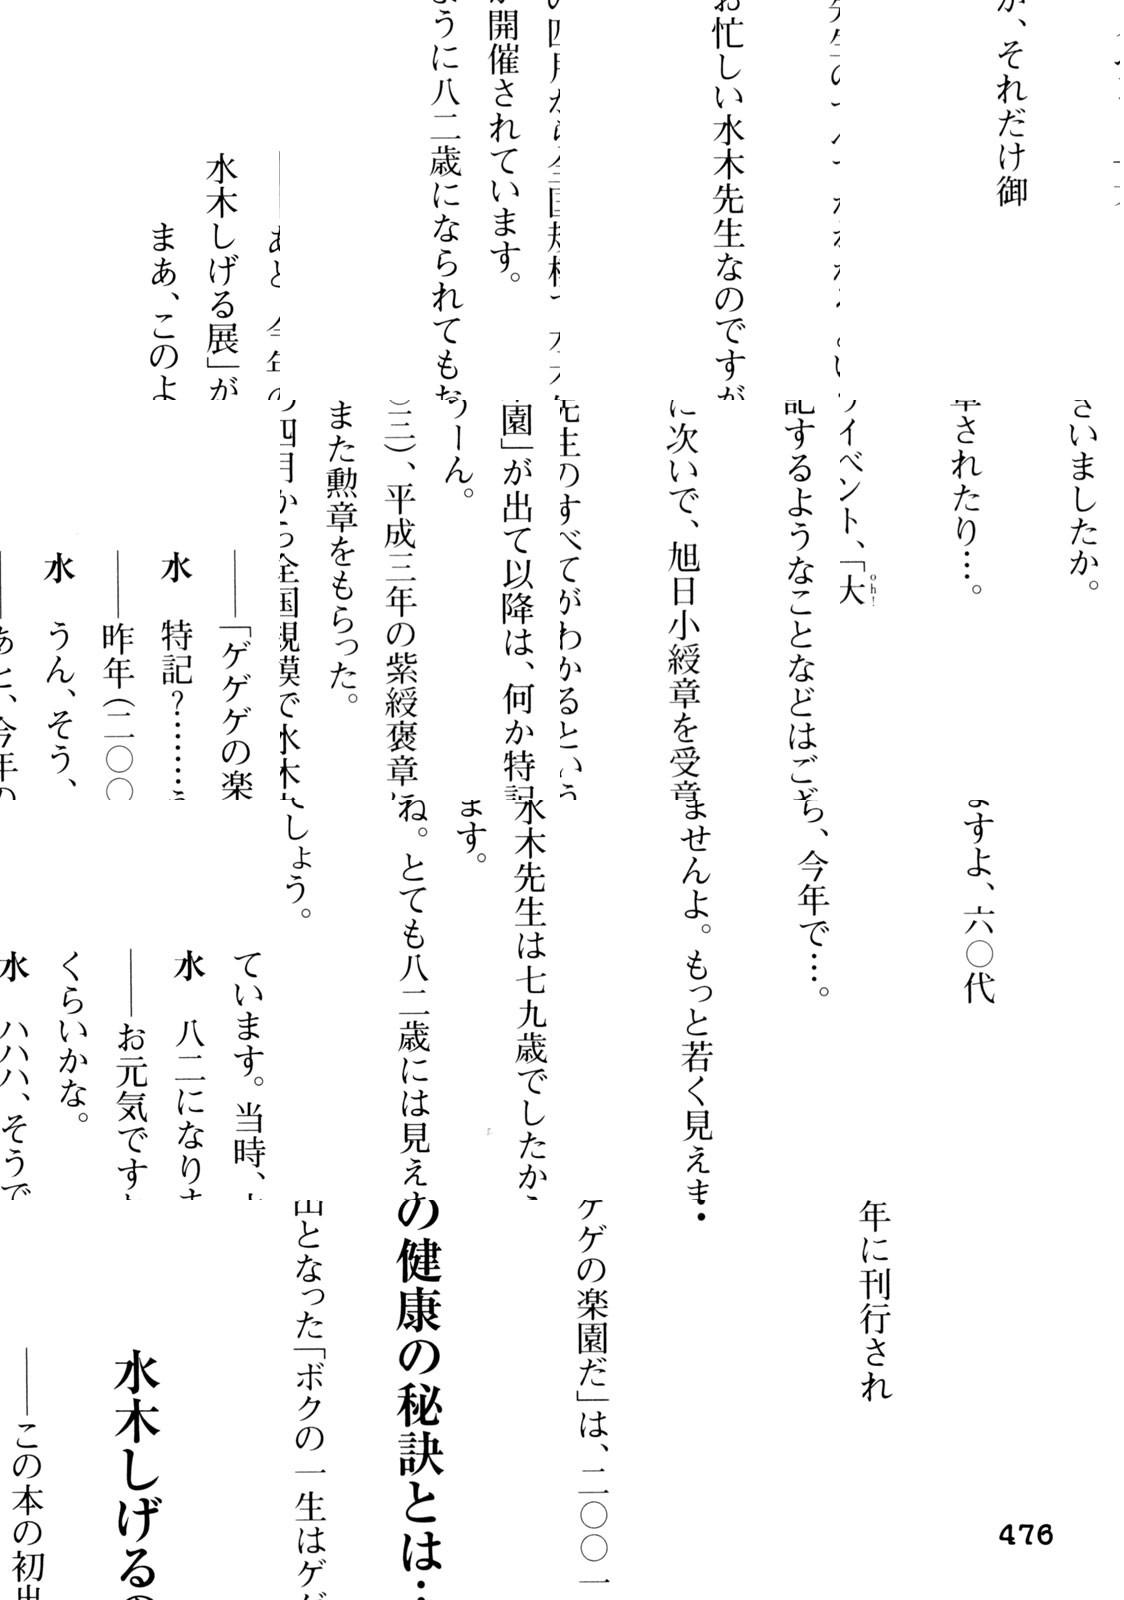 水木しげるの健康の秘訣とは…
——この本の初出となった「ボクの一生はゲゲゲの楽園だ」は、二〇〇一年に刊行され
ています。当時、水木先生は七九歳でしたから、今年で…。
水　八二になります。
——お元気ですね。とても八二歳には見えませんよ。もっと若く見えますよ、六〇代
くらいかな。
水　ハハハ、そうでしょう。
——「ゲゲゲの楽園」が出て以降は、何か特記するようなことなどはございましたか。
水　特記?………うーん。
——昨年(二〇〇三)、平成三年の紫綬褒章に次いで、旭日小綬章を受章されたり…。
水　うん、そう、また勲章をもらった。
——あと、今年の四月から全国規模で水木先生のすべてがわかるというイベント、「大
oh!
水木しげる展」が開催されています。
まあ、このように八二歳になられてもお忙しい水木先生なのですが、それだけ御
476